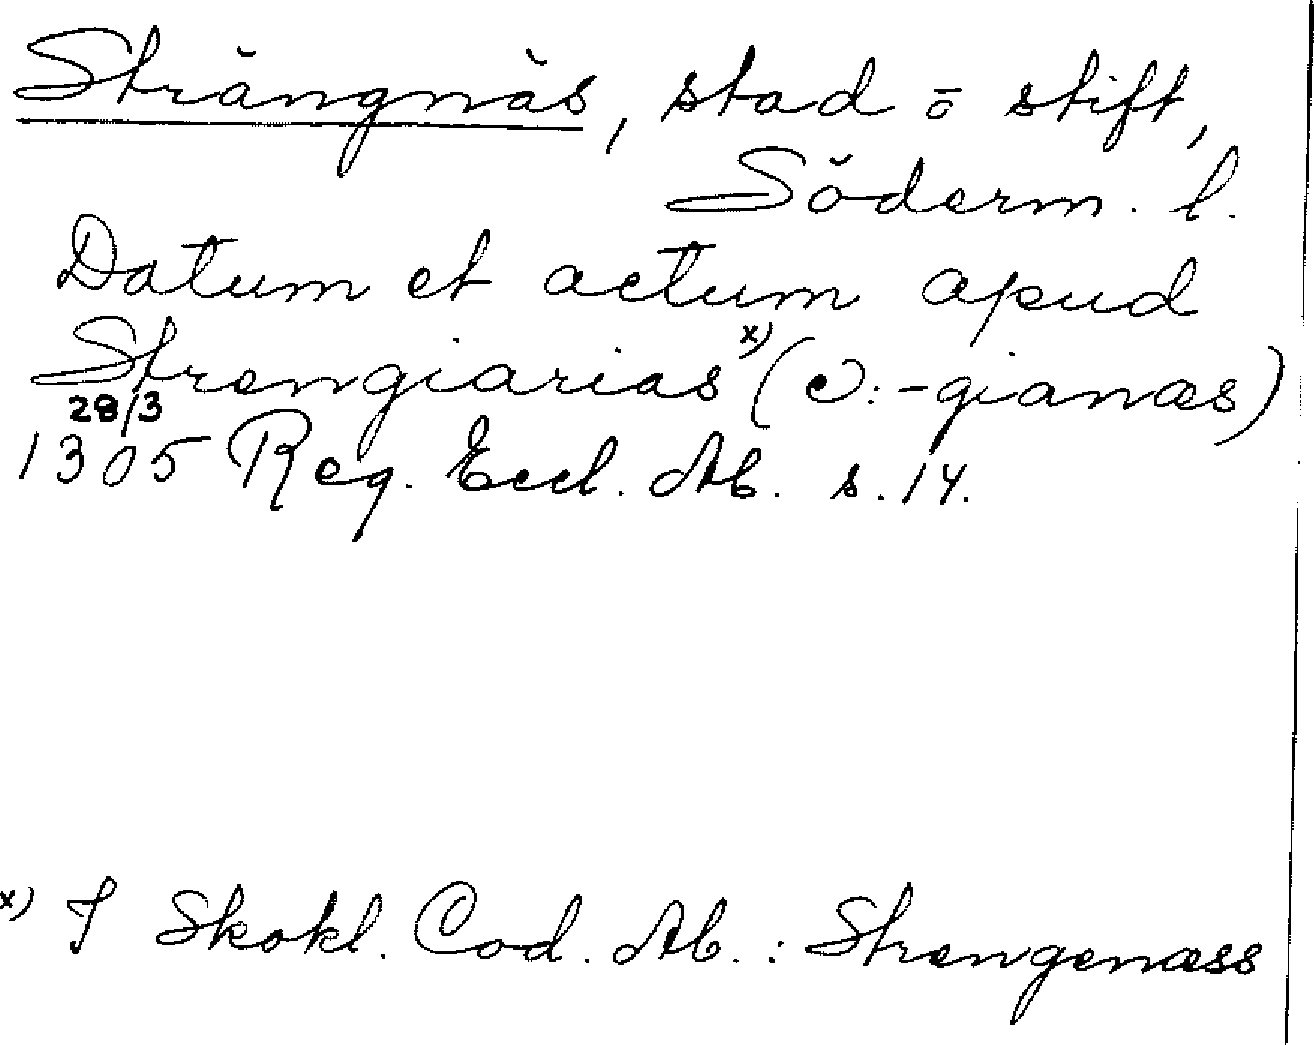 Strängnäs, stad ō stift,
Söderm. l.
Datum et actum apud
Strengiarias x) (ↄ: -gianæs)
28/3
1305 Reg. Eccl. Ab. s. 14.
x) I Skokl. Cod. Ab.: Strengenæss